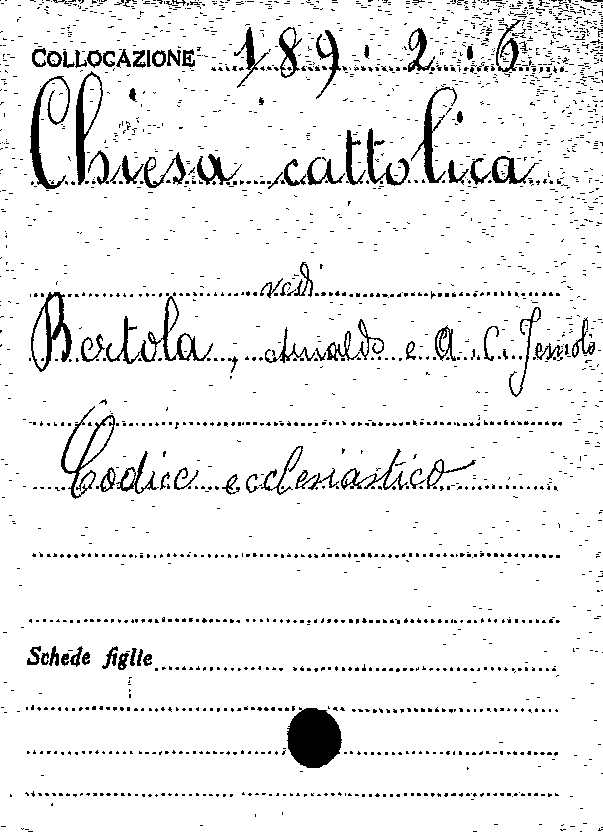 COLLOCAZIONE 189.2.6
Chiesa cattolica
vedi
Bertola, Arnaldo e A. C. Jemolo
Codice ecclesiastico
Schede figlie